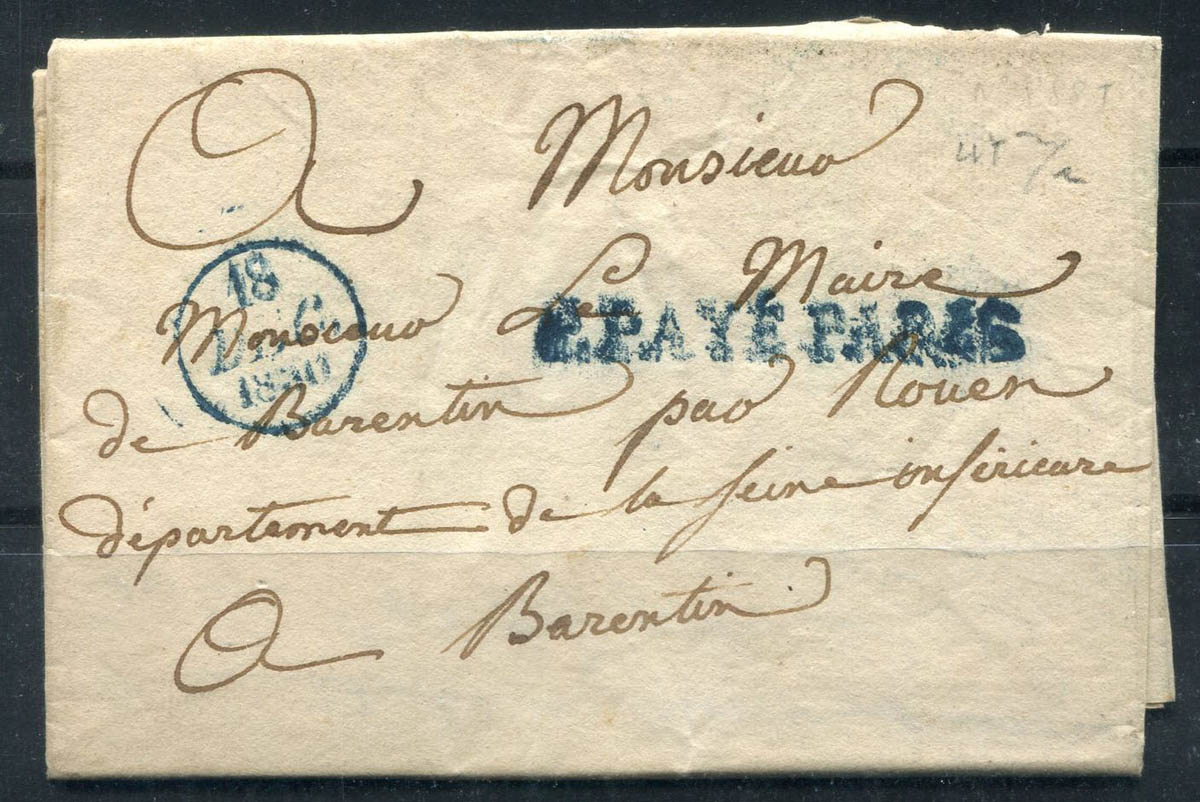 A Monsieur
Monsieur Le Maire
de Barentin par Rouen
département de la seine inférieure
A Barentin
18
DEC
1830
P.PAYÉ PARIS